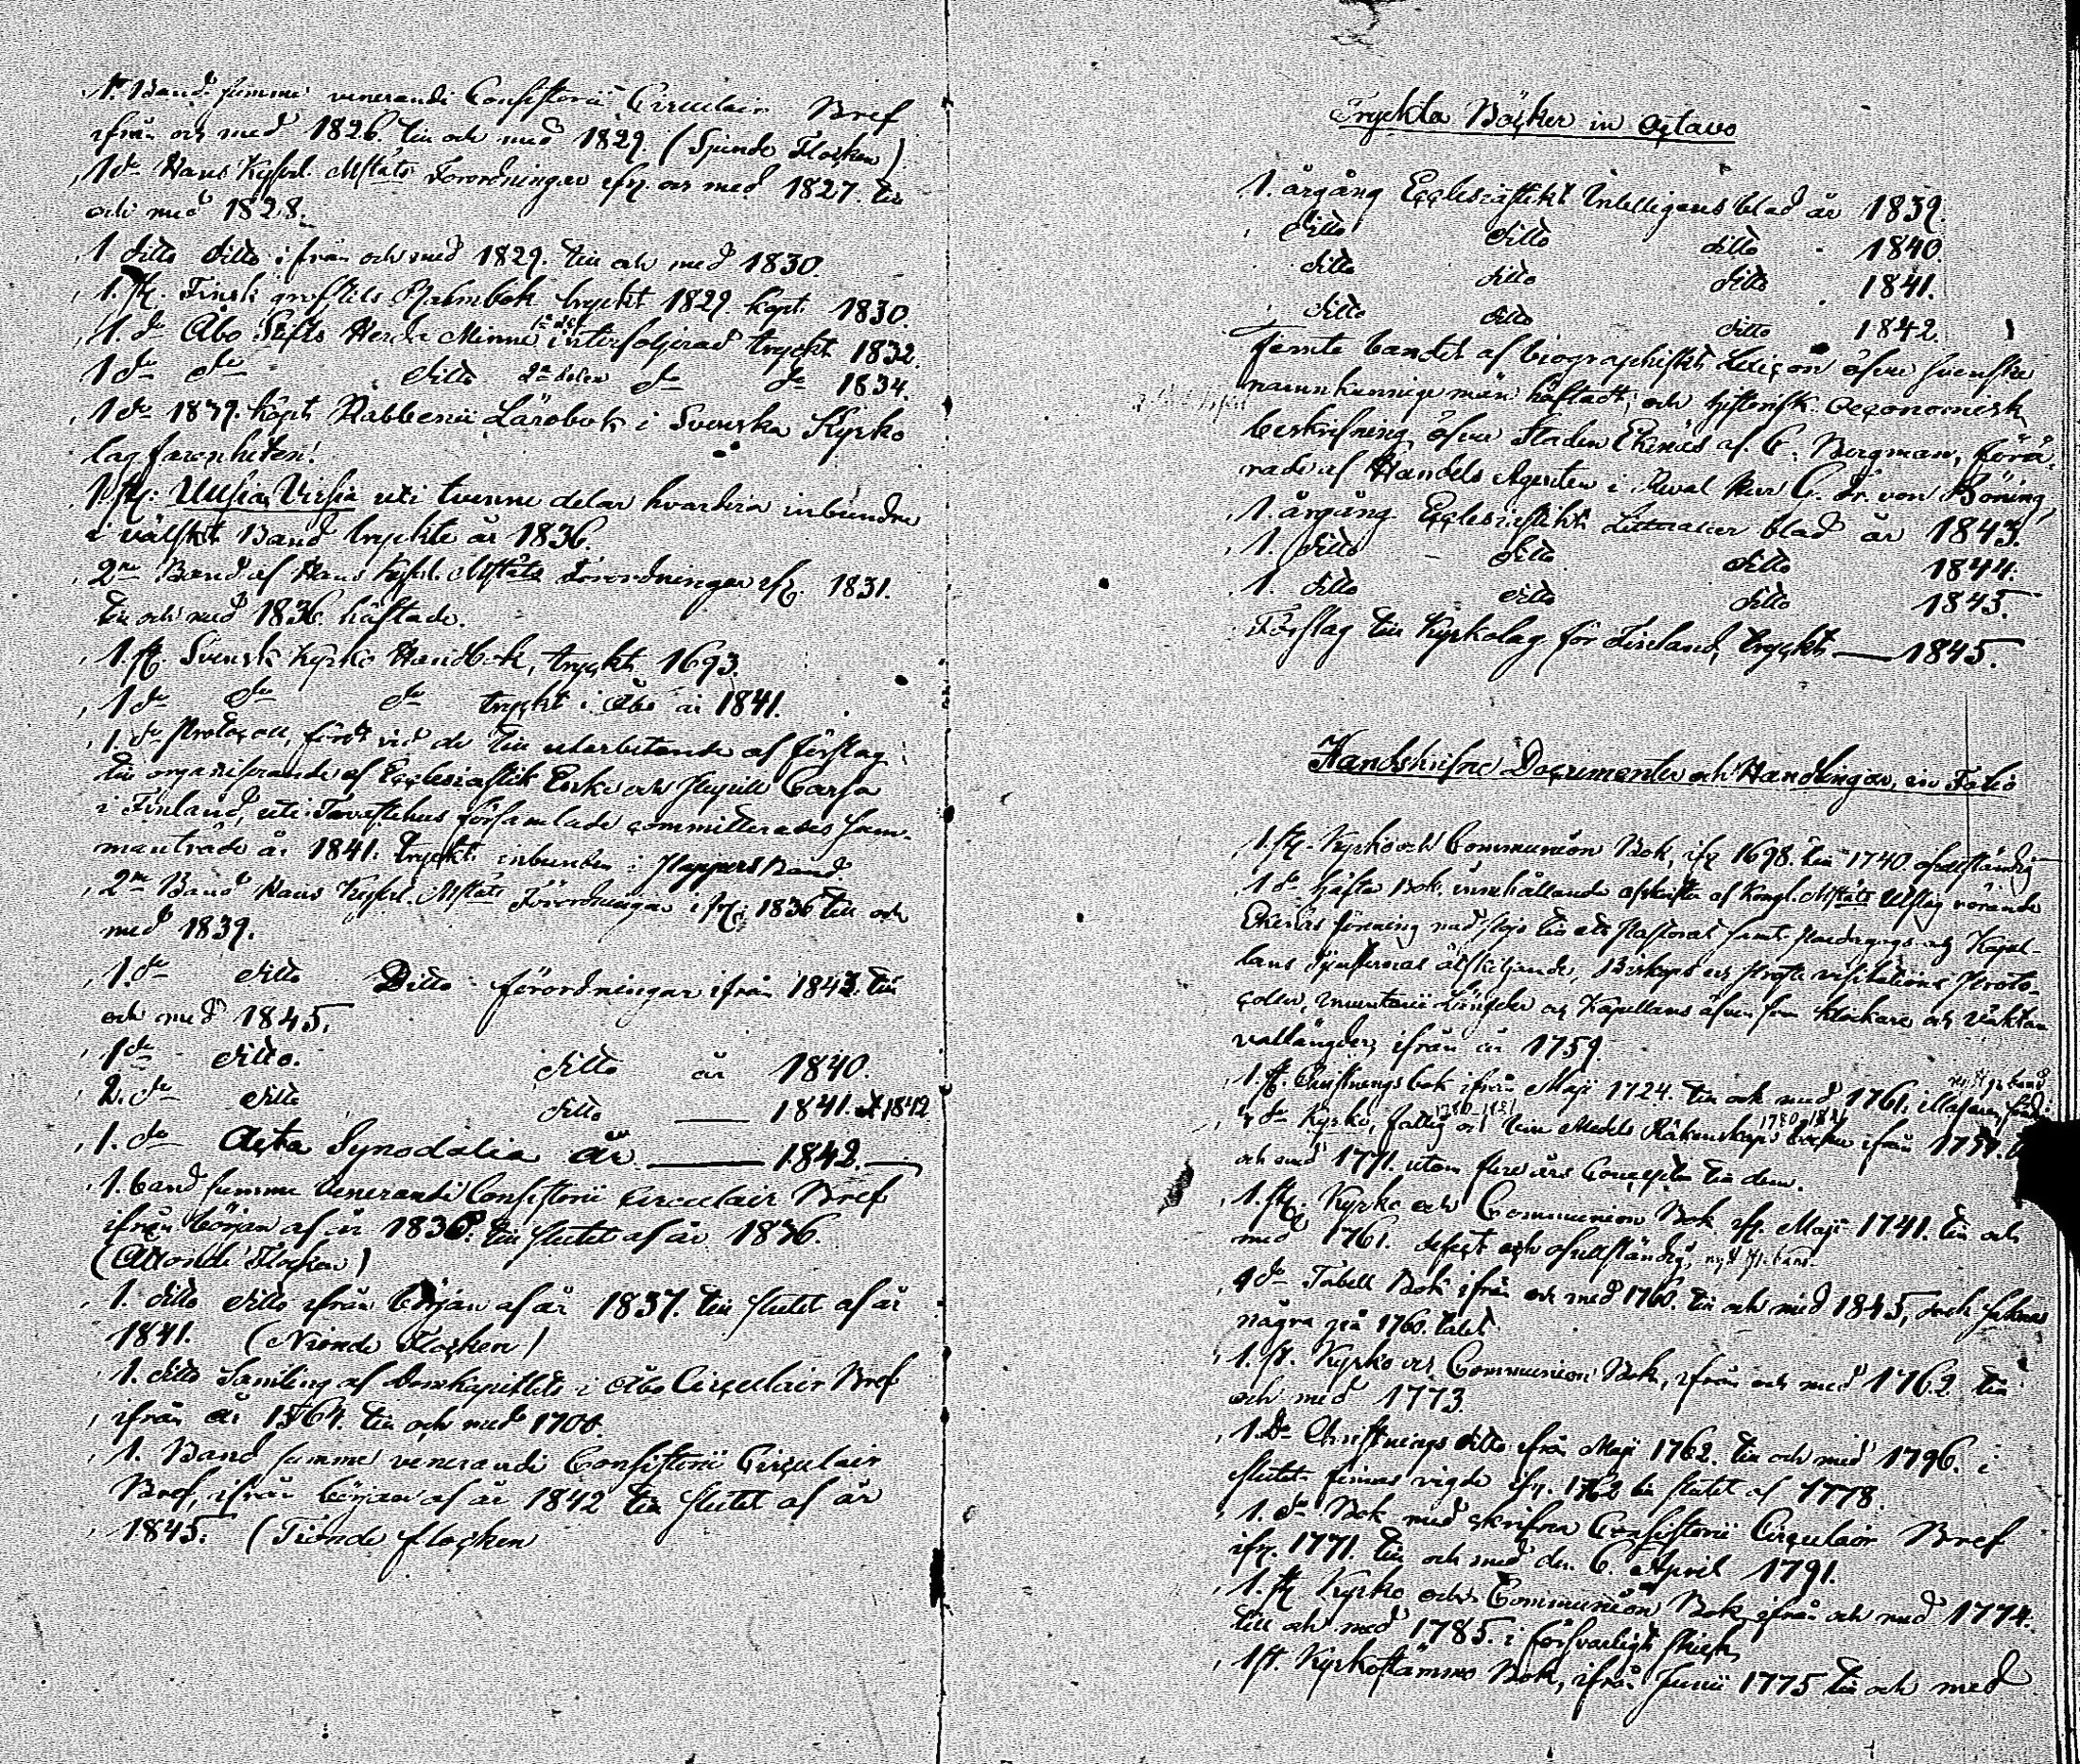 1. Band summe venerandi Consistorii Circulair Bref
ifrån och med 1826. till och med 1829. (Sjunde Flocken)
1 do Hans Kejserl. Mstäts Förordningar ifr. och med 1827. till
och med 1828.
1 ditto ditto ifrån och med 1829. till och med 1830.
1. st. Finsk grofstils Psalmbok tryckt 1829. köpt 1830.
1. do Åbo Stifts Herda Minne 1a del interfolierad tryckt 1832.
1 do do ditto 2a delen do do 1834.
1 do 1839. köpt Rabbenii Lärobok i Svenska Kyrko
lag farenheten.
1. st. Uusia Virsiä uti tvenne delar hvardera inbundne
i välskt Band tryckte år 1836.
2ne Band af Hans Kejserl. Mstäts Förordningar ifr. 1831.
till och med 1836 häftade.
1. st. Svensk Kyrko Handbok, tryckt 1693.
1 do do do tryckt i Åbo år 1841.
1. do Protocoll, fördt vid de till utarbetande af förslag
till organiserande af Ecclesiastik Enke och Pupill Cassa
i Finland, uti Tavastehus församlade committerades sam-
manträde år 1841. tryckt inbunden i Pappers Band
2ne Band Hans Kejserl. Mstäts Förordningar ifr. 1836 till och
med 1839.
1. do ditto Ditto förordningar ifrån 1843. till
och med 1845.
1 do ditto. ditto år 1840.
2. do ditto ditto 1841. & 1842
1. do Acta Synodalia år 1842.
1. band summe Venerandi Consistorii Circulair Bref
ifrån början af år 1830. till slutet af år 1836.
(Åttonde Flocken)
1. ditto ditto ifrån början af år 1837. till slutet af år
1841. (Nionde Flocken)
1. ditto Samling af Domkapitlets i Åbo Circulair Bref
ifrån år 1564. till och med 1700.
1. Band summe venerandi Consistorii Circulair
Bref, ifrån början af år 1842 till slutet af år
1845. (Tionde flocken
Tryckta Böcker in Octavo
1. årgång Ecclesiastikt Intelligens blad år 1839.
ditto ditto ditto 1840
ditto ditto ditto 1841.
ditto ditto ditto 1842.
Femte bandet af biographiskt Lexicon öfver svenske
namnkunnige män häftadt, och historisk Oeconomisk
beskrifning öfver Staden Ekenäs af C. Bergman, förä-
rade af Handels Agenten i Reval Herr C. Fr. von Böning,
1. årgång Ecclesiastikt Litteratur blad år 1843.
1. ditto ditto ditto 1844.
1. ditto ditto ditto 1845.
Förslag till Kyrkolag för Finland, tryckt 1845.
Handskrifne Documenter och Handlingar, in Folio
1. st. Kyrko och Communion Bok, ifr 1698. till 1740. ofullständig
1 do häfta Bok innehållande afskrifter af Kongl. Mstäts Utslag rörande
Ekenäs förening med Pojo till ett Pastorat samt Paedagogs och Kapel-
lans Tjensternas åtskiljande, Biskops och Prosts visitations Proto-
coller, Inventarii Längder och Kapellans äfven som Klockare och Väktare
vallängder, ifrån år 1759.
1. st. Christnings bok ifrån Maji 1724. till och med 1761. illafaren,
do Kyrko, fattig och Räkenskaps böcker ifrån 1757.
och med 1771. utom flere års Concepter till dem.
1. st. Kyrko och Communion Bok ifr. Maji 1741. till och
med 1761. defect och ofullständig, nytt st. band.
4 do Tabell Bok ifrån och med 1760. till och med 1845, dock saknas
några på 1760. talet.
1. st. Kyrko och Communion Bok, ifrån och med 1762 till
och med 1773.
1. do Christnings ditto ifrån Maji 1762. till och med 1796. i
slutet finnas vigde ifr. 1762 till slutet af 1778.
1. do Bok med skrifna Consistorii Circulair Bref
ifr. 1771. till och med den 6. April 1791.
1. st Kyrko och Communion Bok, ifrån och med 1774.
till och med 1785. i försvarligt skick
1 st. Kyrkostämmo Bok, ifrån Junii 1775 till och med